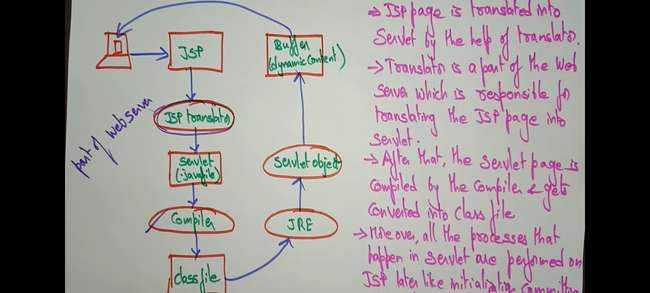 JSP
Buffer
(dynamic content)
JSP translator
part of web server
Servlet
(.java file)
Servlet object
Compiler
JRE
class file
→ JSP page is translated into
Servlet by the help of translator.
→ Translator is a part of the web
server which is responsible for
translating the JSP page into
servlet.
→ After that, the servlet page is
compiled by the compiler & gets
converted into class file
→ Moreover, all the processes that
happen in servlet are performed on
JSP later like initialization, committing